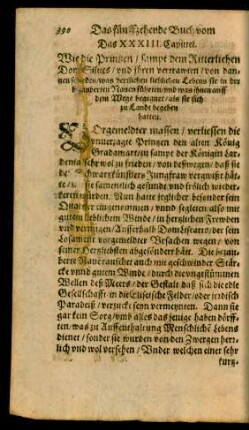 390 Das fünffzehende Buch vom
Das XXXIII. Capittel.
Wie die Printzen / sampt dem Ritterlichen
Don Silves / vnd jhren verwandten / von dannen
schieden, was herrlichen lieblichen Lebens sie in der
bezauberten Nauen führten, vnd was jhnen auff
dem Wege begegnet / als sie sich
zu Lande begeben
hatten.
VOrgemelter massen / verliessen die
vnuerzagte Printzen den alten König
Gradamart / vnd sampt der Königin
sehr wol zu frieden / von deßwegen / daß sie
Schwartzkünstlers Jungfraw vergwißt hätte /
sie samentlich gesunde vnd frölich wieder
Nun hatte jeglicher besonder sein
Quartier eingenommen / vnd segleten also mit
gutem lieblichem Winde / in hertzlichen Frewden
vnd vermögen / Ausserhalb Domisearo / der sein
Losament vorgemeldter Vrsachen wegen / von
seiner Hertzliebsten abgesondert hätte. Die
Nauë rauschet auch mit geschwinder Stärcke
vnnd gutem Winde / durch die vngestümmen
Wellen deß Meers / der Gestalt daß sich die edle
Gesellschafft / in die Eliseische Felder / oder irrdisch
Paradeiß / verzuckt seyn vermeynten. Dann sie
gar kein Sorg / vmb alles das jenige haben dörfften /
was zu Auffenthaltung Menschlichē Lebens
dienet / sonder sie wurden von den Zwergen herrlich
vnd wol versehen / Vnder welchen einer sehr
kurtz-